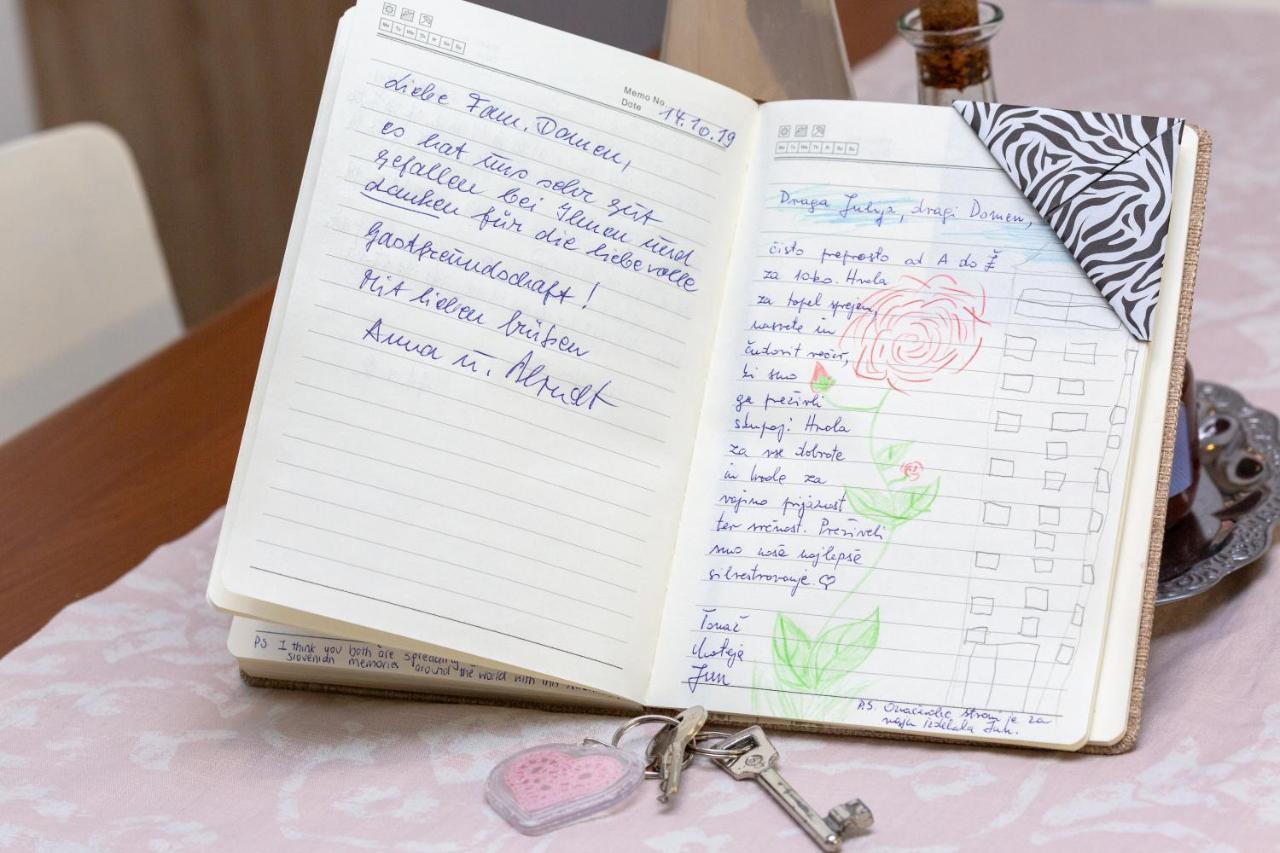 Memo No.
Date 14.10.19
Liebe Fam. Domen,
es hat uns sehr gut
gefallen bei Ihnen und
danken für die liebevolle
Gastfreundschaft!
Mit lieben Grüßen
Anna u.
Mo Tu We Th Fr Sa Su
Draga Julija, dragi Domen,
čisto preprosto od A do Ž
za 10ko. Hvala
za topel sprejem,
nasvete in
čudovit večer,
ki smo
ga preživeli
skupaj. Hvala
za vse dobrote
in hvala za
vajino prijaznost
ter srčnost. Preživeli
smo naše najlepše
silvestrovanje. ♡
Tomaž
Mateja
P.S. stran je za
vaju izdelala
P.S. I think you both are spreading
slovenian memories around the world with this